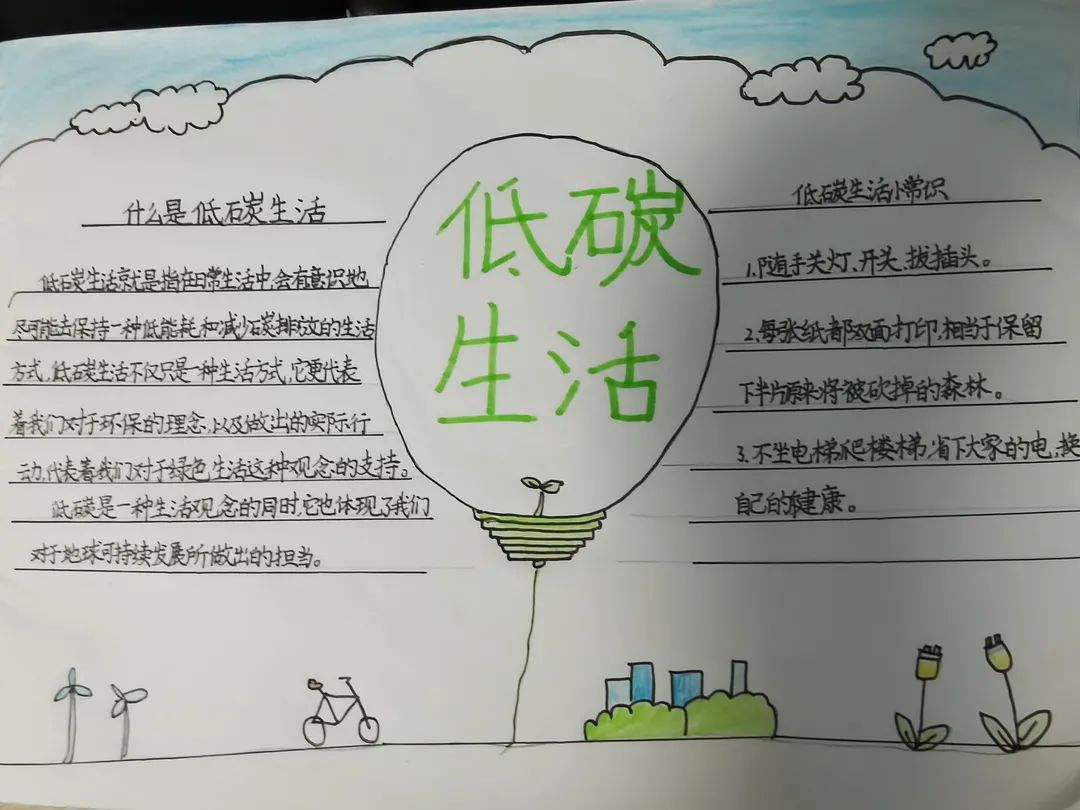 低碳
生活
什么是低碳生活
低碳生活就是指在日常生活中,会有意识地
尽可能去保持一种低能耗和减少碳排放的生活
方式,低碳生活不仅只是一种生活方式,它更代表
着我们对于环保的理念,以及做出的实际行
动,代表着我们对于绿色生活这种观念的支持。
低碳是一种生活观念的同时,它也体现了我们
对于地球可持续发展所做出的担当。
低碳生活小常识
1.随手关灯、开头、拔插头。
2.每张纸都双面打印,相当于保留
下半片原来将被砍掉的森林。
3.不坐电梯爬楼梯,省下大家的电,换
自己的健康。